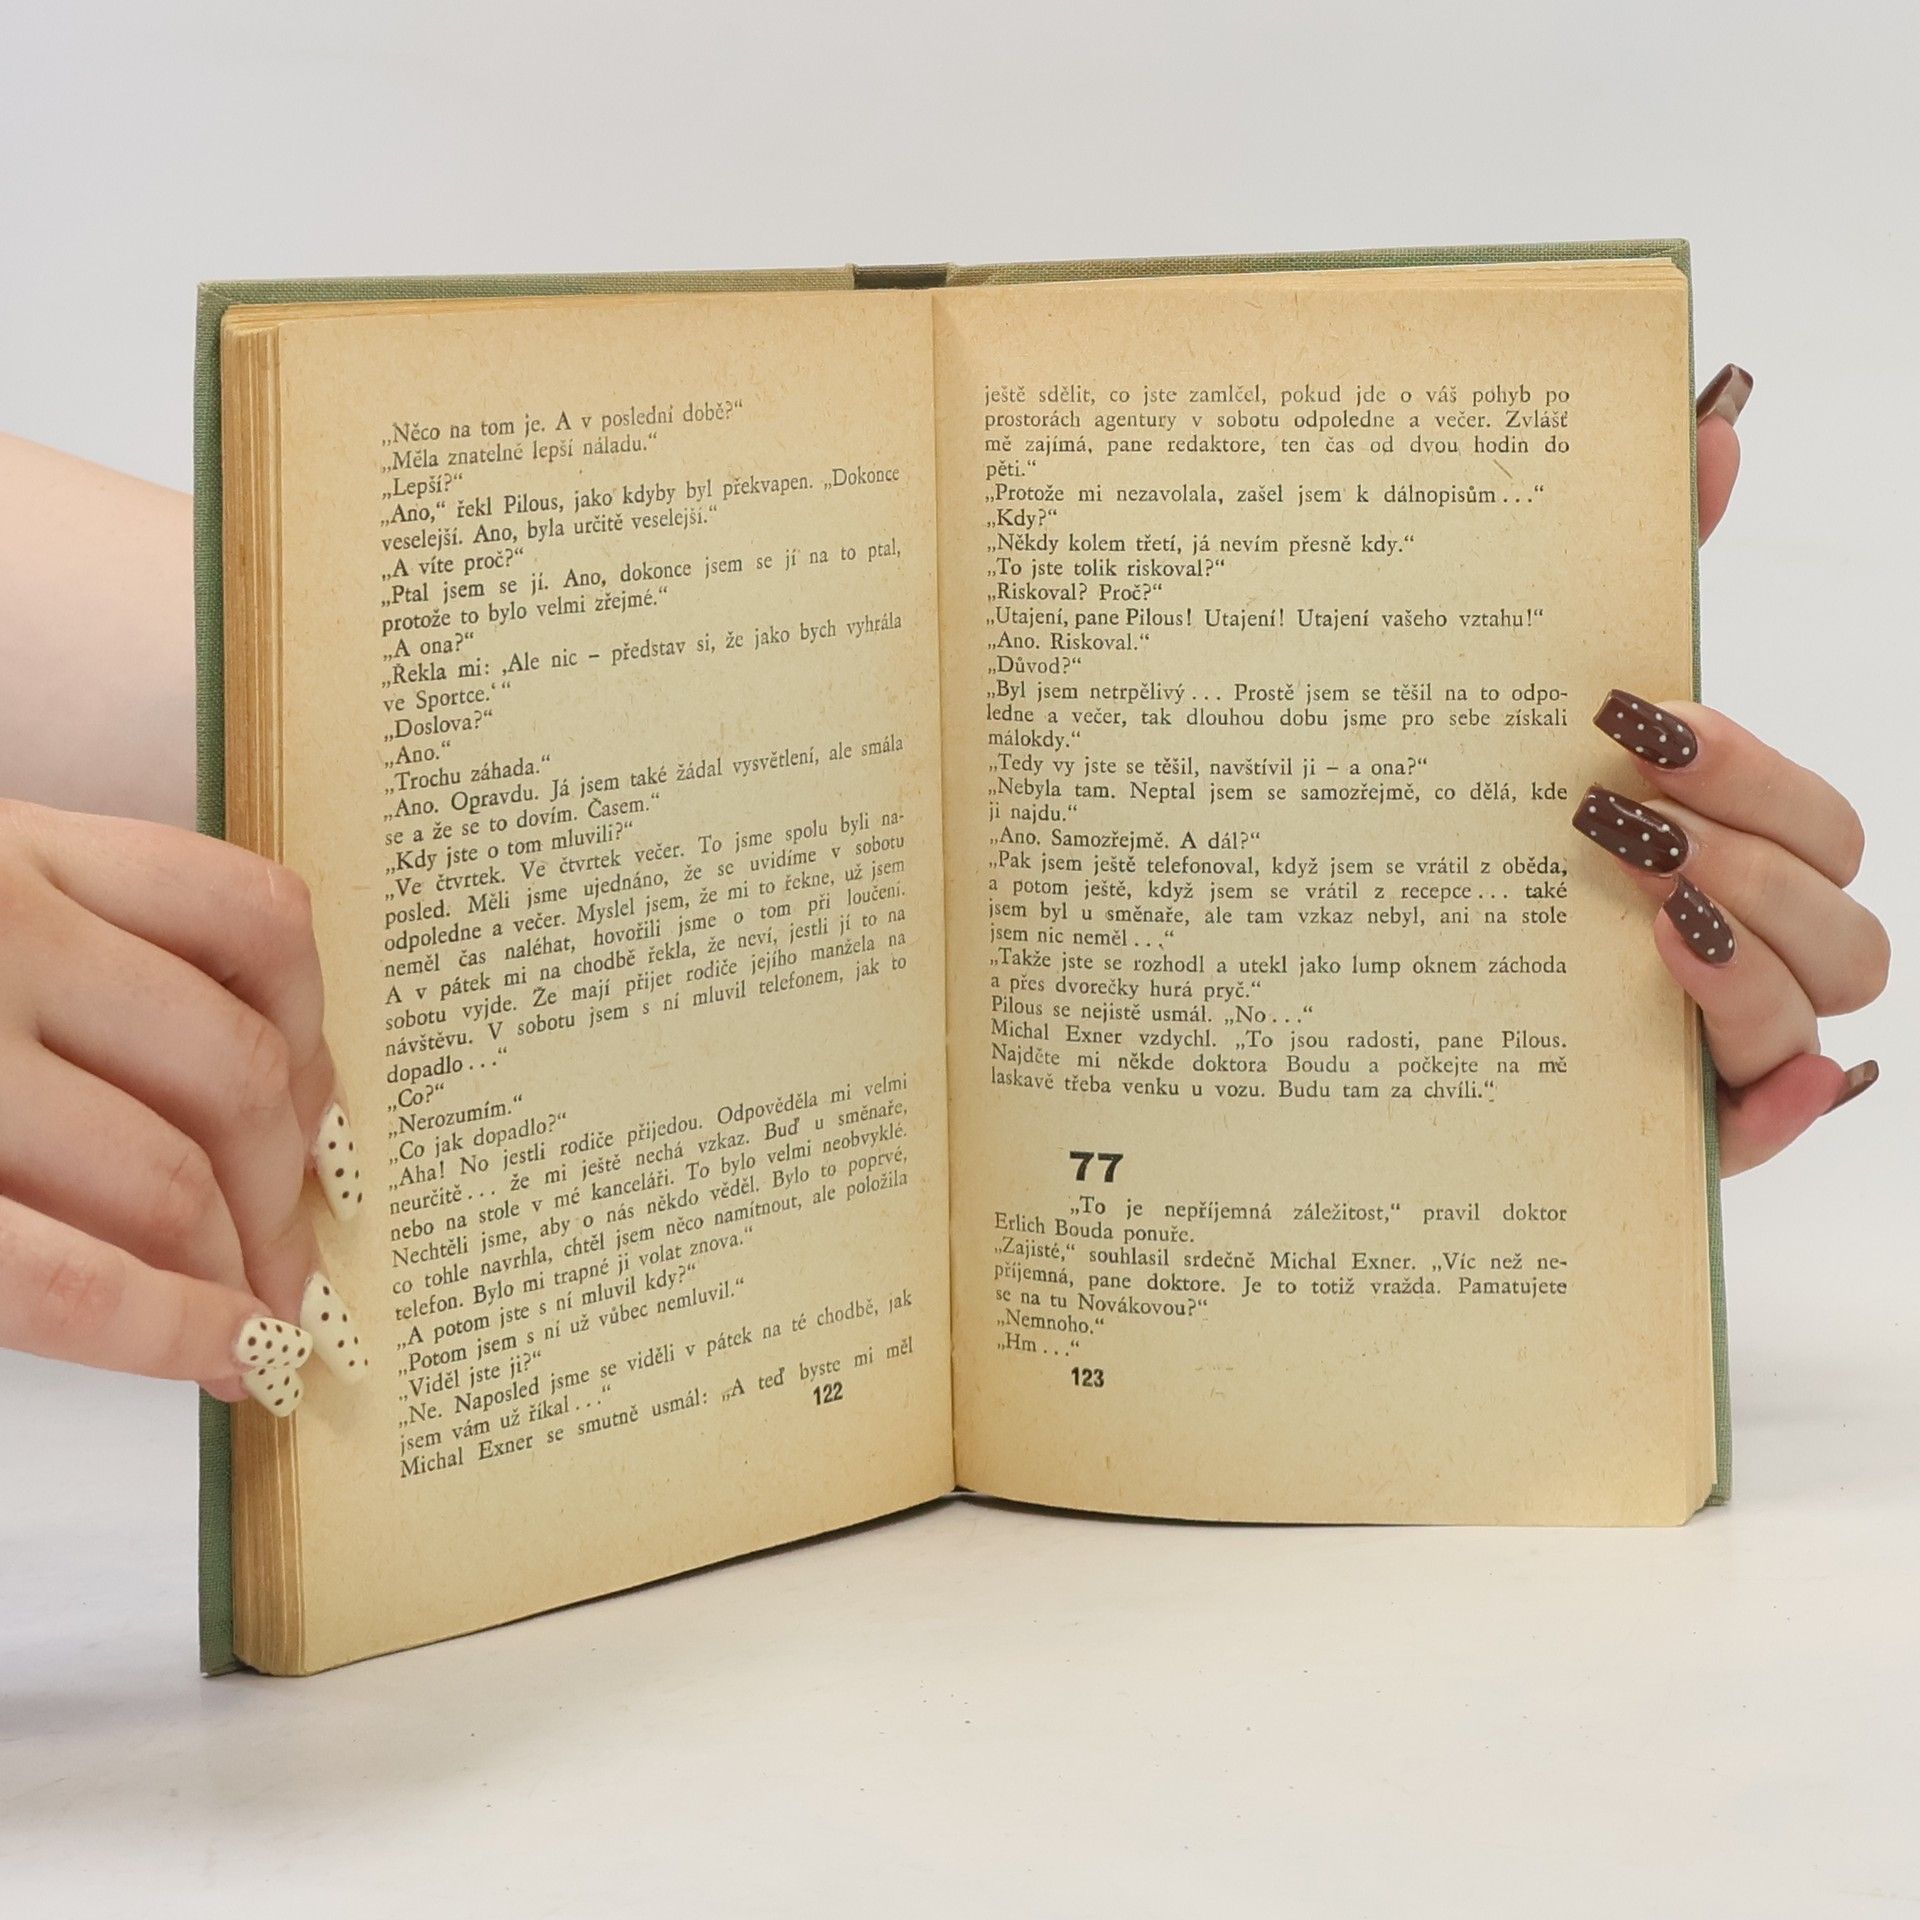 „Něco na tom je. A v poslední době?“
„Měla znatelně lepší náladu.“
„Lepší?“
„Ano,“ řekl Pilous, jako kdyby byl překvapen. „Dokonce
veselejší. Ano, byla určitě veselejší.“
„A víte proč?“
„Ptal jsem se jí. Ano, dokonce jsem se jí na to ptal,
protože to bylo velmi zřejmé.“
„A ona?“
„Řekla mi: ‚Ale nic – představ si, že jako bych vyhrála
ve Sportce.‘ “
„Doslova?“
„Ano.“
„Trochu záhada.“
„Ano. Opravdu. Já jsem také žádal vysvětlení, ale smála
se a že se to dovím. Časem.“
„Kdy jste o tom mluvili?“
„Ve čtvrtek. Ve čtvrtek večer. To jsme spolu byli na-
posled. Měli jsme ujednáno, že se uvidíme v sobotu
odpoledne a večer. Myslel jsem, že mi to řekne, už jsem
neměl čas naléhat, hovořili jsme o tom při loučení.
A v pátek mi na chodbě řekla, že neví, jestli jí to na
sobotu vyjde. Že mají přijet rodiče jejího manžela na
návštěvu. V sobotu jsem s ní mluvil telefonem, jak to
dopadlo . . .“
„Co?“
„Nerozumím.“
„Co jak dopadlo?“
„Aha! No jestli rodiče přijedou. Odpověděla mi velmi
neurčitě . . . že mi ještě nechá vzkaz. Buď u směnaře,
nebo na stole v mé kanceláři. To bylo velmi neobvyklé.
Nechtěli jsme, aby o nás někdo věděl. Bylo to poprvé,
co tohle navrhla, chtěl jsem něco namítnout, ale položila
telefon. Bylo mi trapné ji volat znova.“
„A potom jste s ní mluvil kdy?“
„Potom jsem s ní už vůbec nemluvil.“
„Viděl jste ji?“
„Ne. Naposled jsme se viděli v pátek na té chodbě, jak
jsem vám už říkal . . .“
Michal Exner se smutně usmál: „A teď byste mi měl
122
ještě sdělit, co jste zamlčel, pokud jde o váš pohyb po
prostorách agentury v sobotu odpoledne a večer. Zvlášť
mě zajímá, pane redaktore, ten čas od dvou hodin do
pěti.“
„Protože mi nezavolala, zašel jsem k dálnopisům . . .“
„Kdy?“
„Někdy kolem třetí, já nevím přesně kdy.“
„To jste tolik riskoval?“
„Riskoval? Proč?“
„Utajení, pane Pilous! Utajení! Utajení vašeho vztahu!“
„Ano. Riskoval.“
„Důvod?“
„Byl jsem netrpělivý . . . Prostě jsem se těšil na to odpo-
ledne a večer, tak dlouhou dobu jsme pro sebe získali
málokdy.“
„Tedy vy jste se těšil, navštívil ji – a ona?“
„Nebyla tam. Neptal jsem se samozřejmě, co dělá, kde
ji najdu.“
„Ano. Samozřejmě. A dál?“
„Pak jsem ještě telefonoval, když jsem se vrátil z oběda,
a potom ještě, když jsem se vrátil z recepce . . . také
jsem byl u směnaře, ale tam vzkaz nebyl, ani na stole
jsem nic neměl . . .“
„Takže jste se rozhodl a utekl jako lump oknem záchoda
a přes dvorečky hurá pryč.“
Pilous se nejistě usmál. „No . . .“
Michal Exner vzdychl. „To jsou radosti, pane Pilous.
Najděte mi někde doktora Boudu a počkejte na mě
laskavě třeba venku u vozu. Budu tam za chvíli.“
77
„To je nepříjemná záležitost,“ pravil doktor
Erlich Bouda ponuře.
„Zajisté,“ souhlasil srdečně Michal Exner. „Víc než ne-
příjemná, pane doktore. Je to totiž vražda. Pamatujete
se na tu Novákovou?“
„Nemnoho.“
„Hm . . .“
123